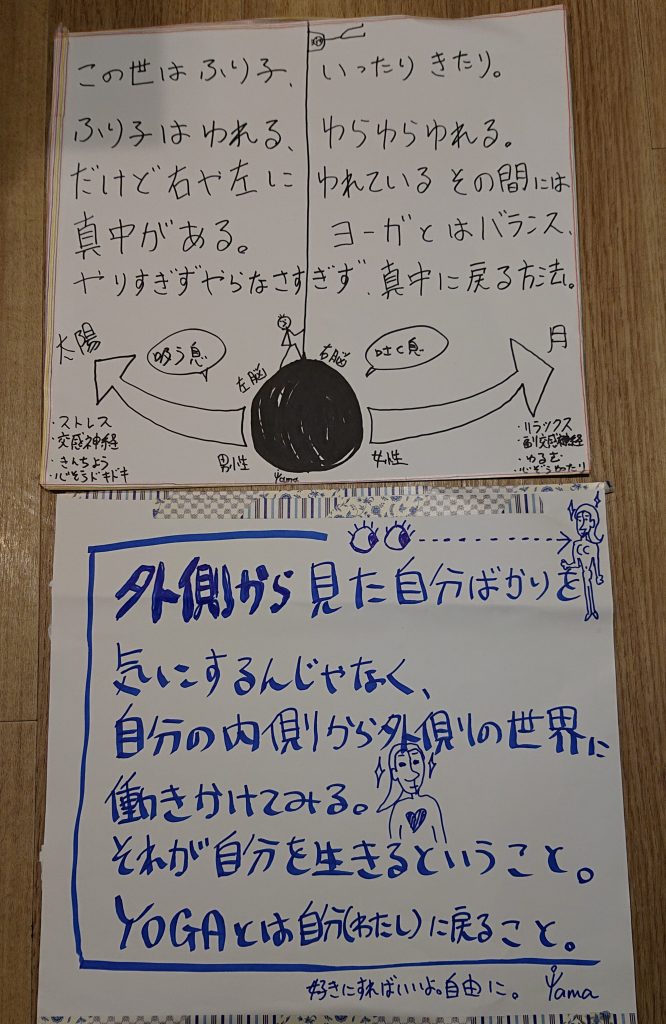 この世は ふり子、いったり きたり。
ふり子は ゆれる、ゆらゆらゆれる。
だけど右や左に ゆれている その間には
真中がある。 ヨーガとはバランス、
やりすぎずやらなさすぎず、真中に戻る方法。
太陽
吸う息
左脳
右脳
吐く息
月
・ストレス
・交感神経
・きんちょう
・心ぞうドキドキ
男性
女性
Yama
・リラックス
・副交感神経
・ゆるむ
・心ぞうゆったり
外側から見た自分ばかりを
気にするんじゃなく、
自分の内側から外側の世界に
働きかけてみる。
それが自分を生きるということ。
YOGAとは自分(わたし)に戻ること。
好きにすればいいよ。自由に。 Yama